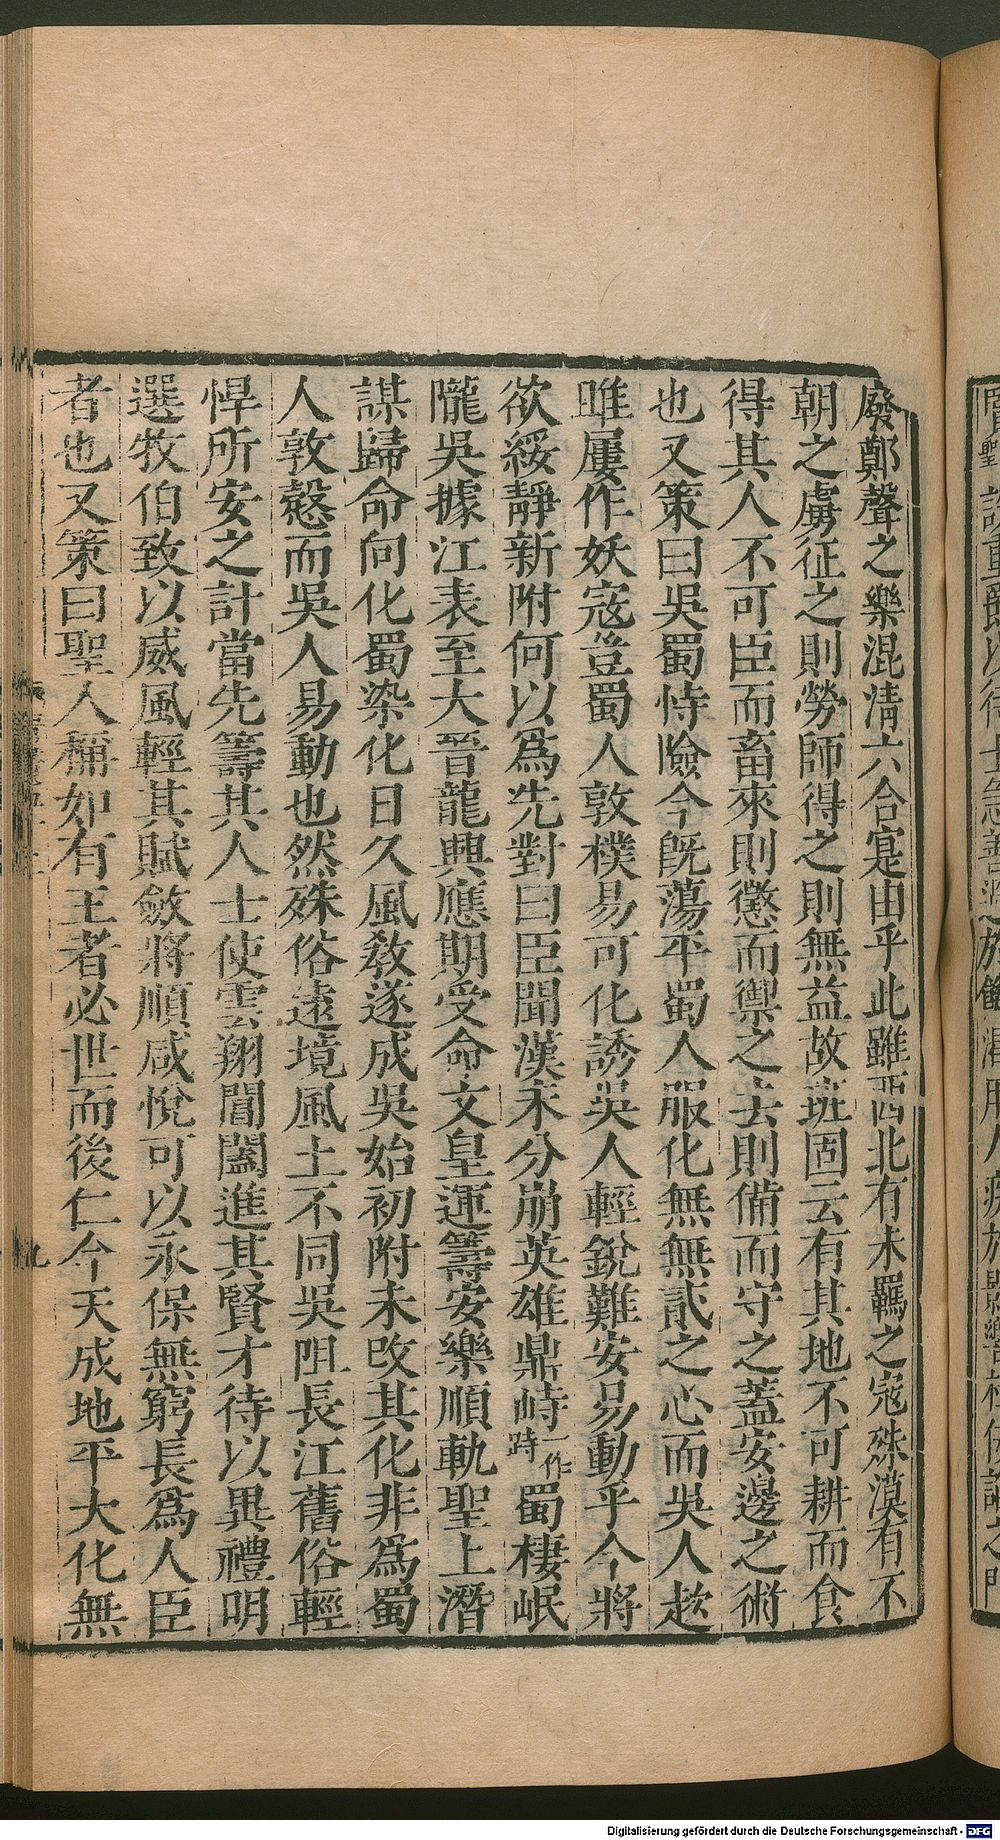 廢鄭聲之樂混清六合寔由乎此雖西北有未羈之寇殊漠有不
朝之虜征之則勞師得之則無益故班固云有其地不可耕而食
得其人不可臣而畜來則懲而禦之去則備而守之蓋安邊之術
也又策曰吳蜀恃險今既蕩平蜀人服化無無貳之心而吳人趑
雎屢作妖寇豈蜀人敦樸易可化誘吳人輕銳難安易動乎今將
欲綏靜新附何以爲先對曰臣聞漢末分崩英雄鼎峙一作時蜀棲岷
隴吳據江表至大晉龍興應期受命文皇運籌安樂順軌聖上潛
謀歸命向化蜀染化日久風敎遂成吳始初附未改其化非爲蜀
人敦慤而吳人易動也然殊俗遠境風土不同吳阻長江舊俗輕
悍所安之計當先籌其人士使雲翔閶闔進其賢才待以異禮明
選牧伯致以威風輕其賦斂將順咸悅可以永保無窮長爲人臣
者也又策曰聖人稱如有王者必世而後仁今天成地平大化無
九
Digitalisierung gefördert durch die Deutsche Forschungsgemeinschaft - DFG